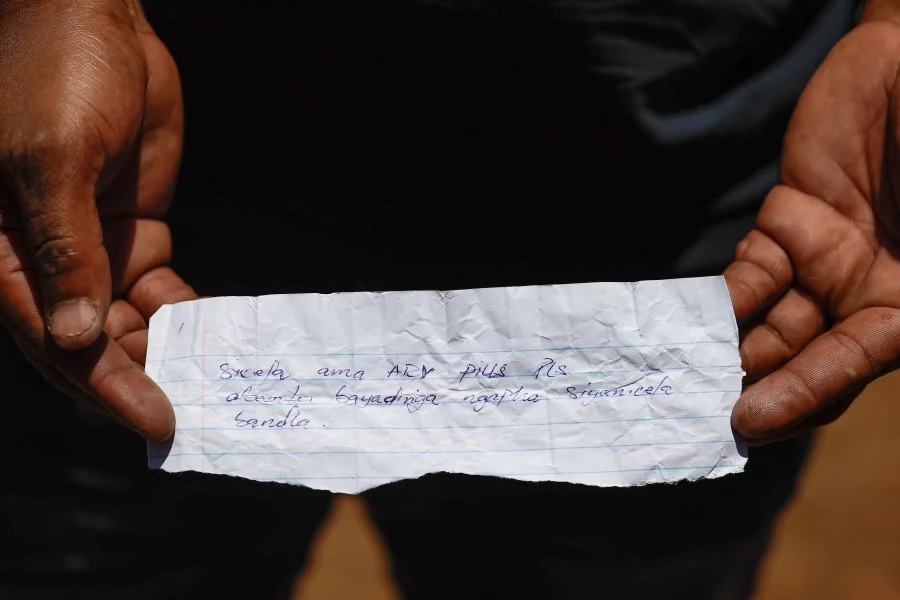 Sicela ama ARV pills Pls
abantu bayadinga ngapha siyanicela
bandla.